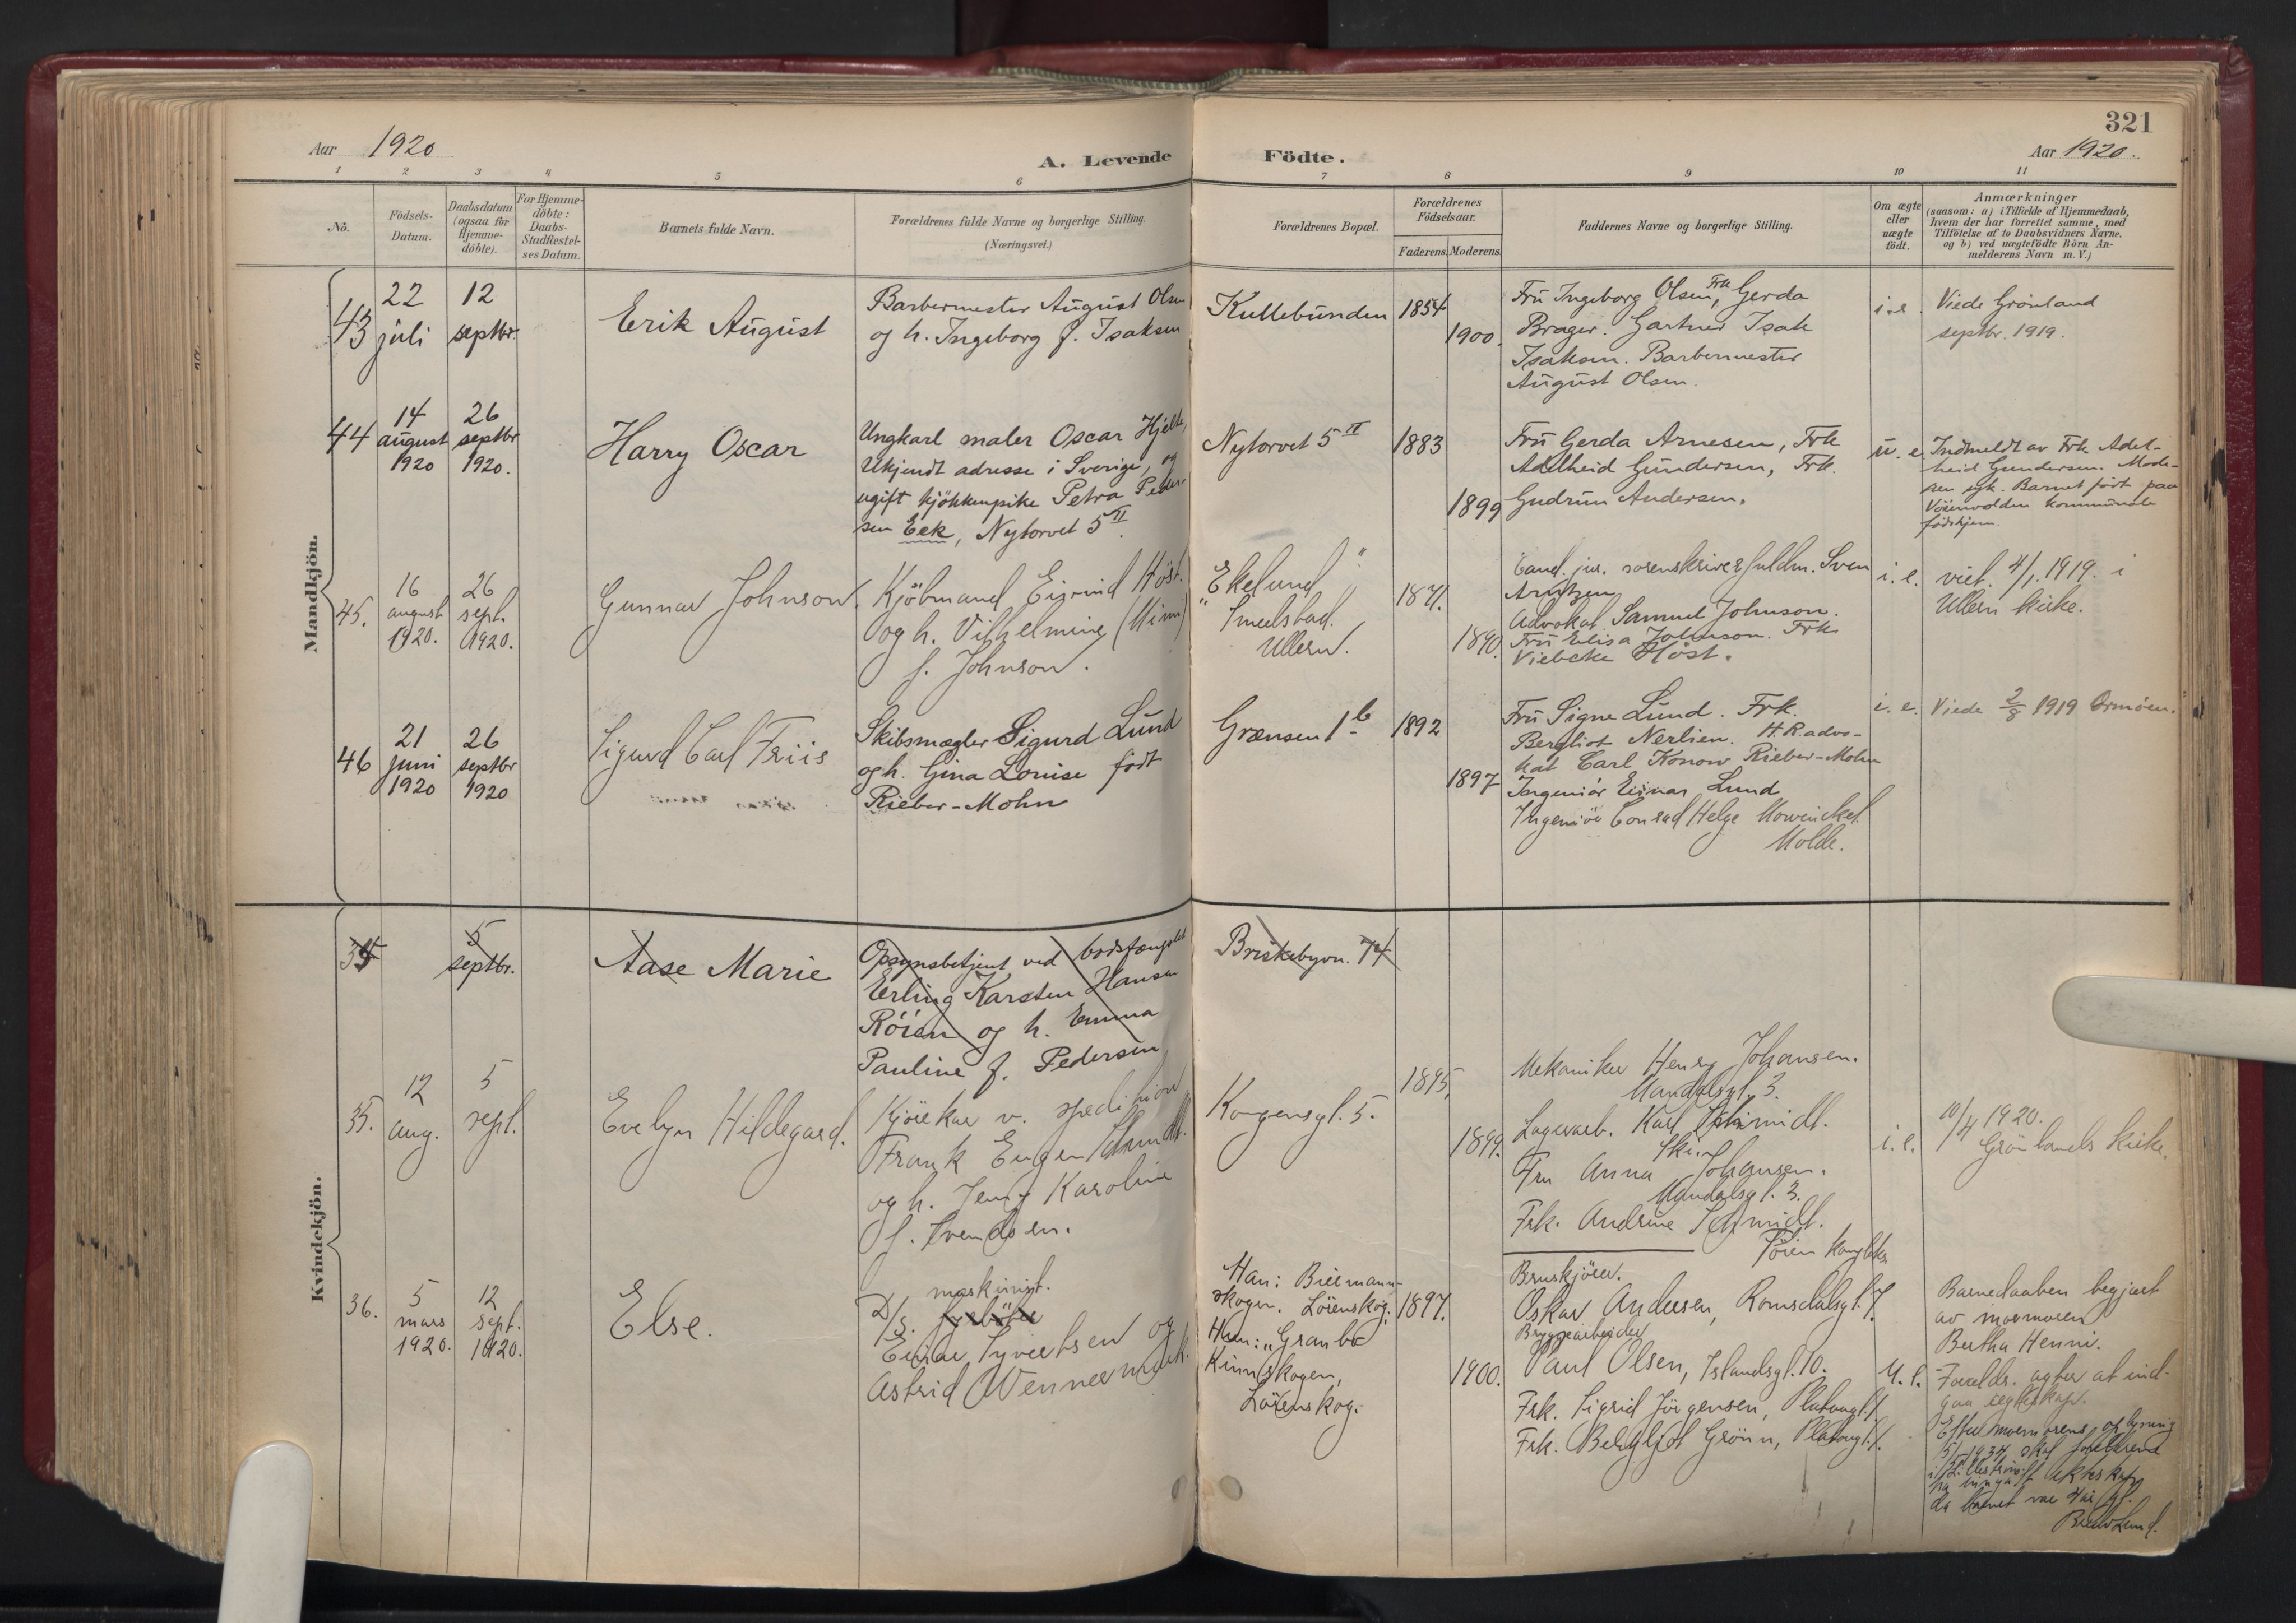 321
Aar 1920
Aar 1920.
A. Levende Födte.
1 2 3 4 5 6 7 8 9 10 11
No.
Födsels-
Datum.
Daabsdatum
(ogsaa for
Hjemme-
döbte).
For Hjemme-
döbte:
Daabs-
Stadfæstel-
ses Datum.
Barnets fulde Navn.
Forældrenes fulde Navne og borgerlige Stilling.
(Næringsvei.)
Forældrenes Bopæl.
Forældrenes
Födselsaar.
Faderens. Moderens.
Faddernes Navne og borgerlige Stilling.
Om ægte
eller
uægte
födt.
Anmærkninger
(saasom: a) i Tilfælde af Hjemmedaab,
hvem der har forrettet samme, med
Tilföielse af to Daabsvidners Navne.
og b) ved uægtefödte Börn An-
melderens Navn m. V.)
Mandkjön.
43
22
juli
12
septbr.
Erik August
Barbermester August Olsen
og h. Ingeborg f. Isaksen
Kullebunden
1854
1900.
Fru Ingeborg Olsen, Frk Gerda
Brager. Gartner Isak
Isaksen. Barbermester
August Olsen.
i.e.
Viede Grönland
septbr. 1919.
44
14
august
1920
26
septbr
1920.
Harry Oscar
Ungkarl maler Oscar Hjelte,
Ukjendt adresse i Sverige, og
ugift kjökkenpike Petra Peder-
sen Eek, Nytorvet 5 II.
Nytorvet 5 II
1883
1899
Fru Gerda Arnesen, Frk
Adelheid Gundersen, Frk.
Gudrun Andersen.
u. e.
Indmeldt av Frk. Adel-
heid Gundersen. Mode-
ren syk. Barnet födt paa
kommunale
födehjem.
45.
16
august
1920.
26
sept.
1920.
Gunnar Johnson.
Kjöbmand Eivind Höst.
og h. Vilhelmine (Mimi)
f. Johnson.
"Ekelund"
Smedstad.
Ullern.
1871.
1890.
Cand. jur. sorenskriverfuldm. Sven
Arntzen
Advokat Samuel Johnson.
Fru Elisa Johnson. Frk
Viebeke Höst.
i. e.
viet. 4/1. 1919. i
Ullern kirke.
46
21
juni
1920
26
septbr
1920
Sigurd Carl Friis
Skibsmægler Sigurd Lund
og h. Gina Louise födt
Rieber-Mohn
Grænsen 1 b
1892
1897
Fru Signe Lund. Frk.
Bergliot Nerlien. H.R.advo-
kat Carl Konow Rieber-Mohn
Ingeniör Einar Lund
Ingeniör Conrad Helge Mowinckel.
Molde.
i. e.
Viede 2/8 1919 Ormöen.
Kvindekjön.
5
septbr.
Aase Marie
Opsynsbetjent ved bodsfængslet
Erling Karsten Hansen
Röien og h. Emma
Pauline f. Pedersen
Briskebyvn. 74
35.
12
aug.
5
sept.
Evelyn Hildegard.
Kjörekar v. spedition
Frank Eugen Schmidt.
og h. Jenny Karoline
f. Svendsen.
Kongensgt. 5.
1895,
1899.
Mekaniker Henry Johansen.
Mandalsgt. 3.
Lagerarb. Karl Schmidt.
Ski.
Fru Anna Johansen.
Mandalsgt. 3.
Frk. Andrine Schmidt.
i. e.
10/4 1920.
Grönlands kirke.
36.
5
mars
1920.
12
sept.
1920.
Else.
maskinist.
D/S. fyrböter
Einar Syvertsen og
Astrid Wennermark.
Han: Biermann-
skogen. Lörenskog.
Hun: "Granbo
Kinnskogen,
Lörenskog.
1897.
1900.
Bruskjörer.
Oskar Andersen, Romsdalsgt. 7.
Bryggearbeider
Paul Olsen, Islandsgt. 10.
Frk. Sigrid Jörgensen, Platousgt. 1.
Frk. Bergljot Grönn, Platousgt. 1.
u. e.
Barnedaaben begjært
av mormoren
Bertha Henni.
Foreldr. agter at ind-
gaa egteskap.
Efter mormorens oplysning
1934 skal foreldrene
ha inngått ekteskap
da barnet var